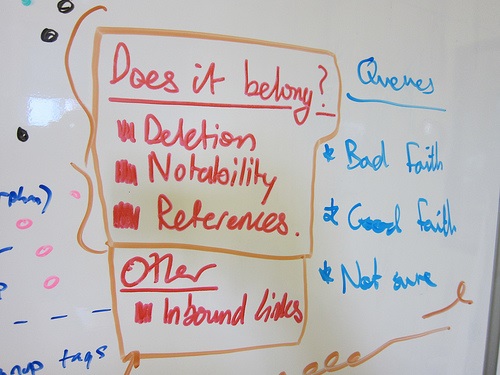 Does it belong?
Deletion
Notability
References.
Other
Inbound links
Queues
* Bad faith
* Good faith
* Not sure
tags